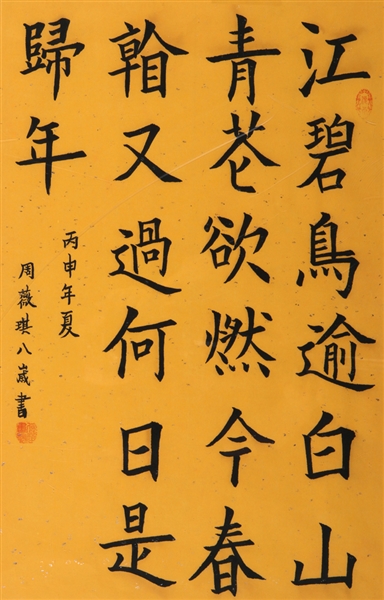 江碧鳥逾白山
青花欲燃今春
看又過何日是
歸年
丙申年夏
周薇琪八歲書